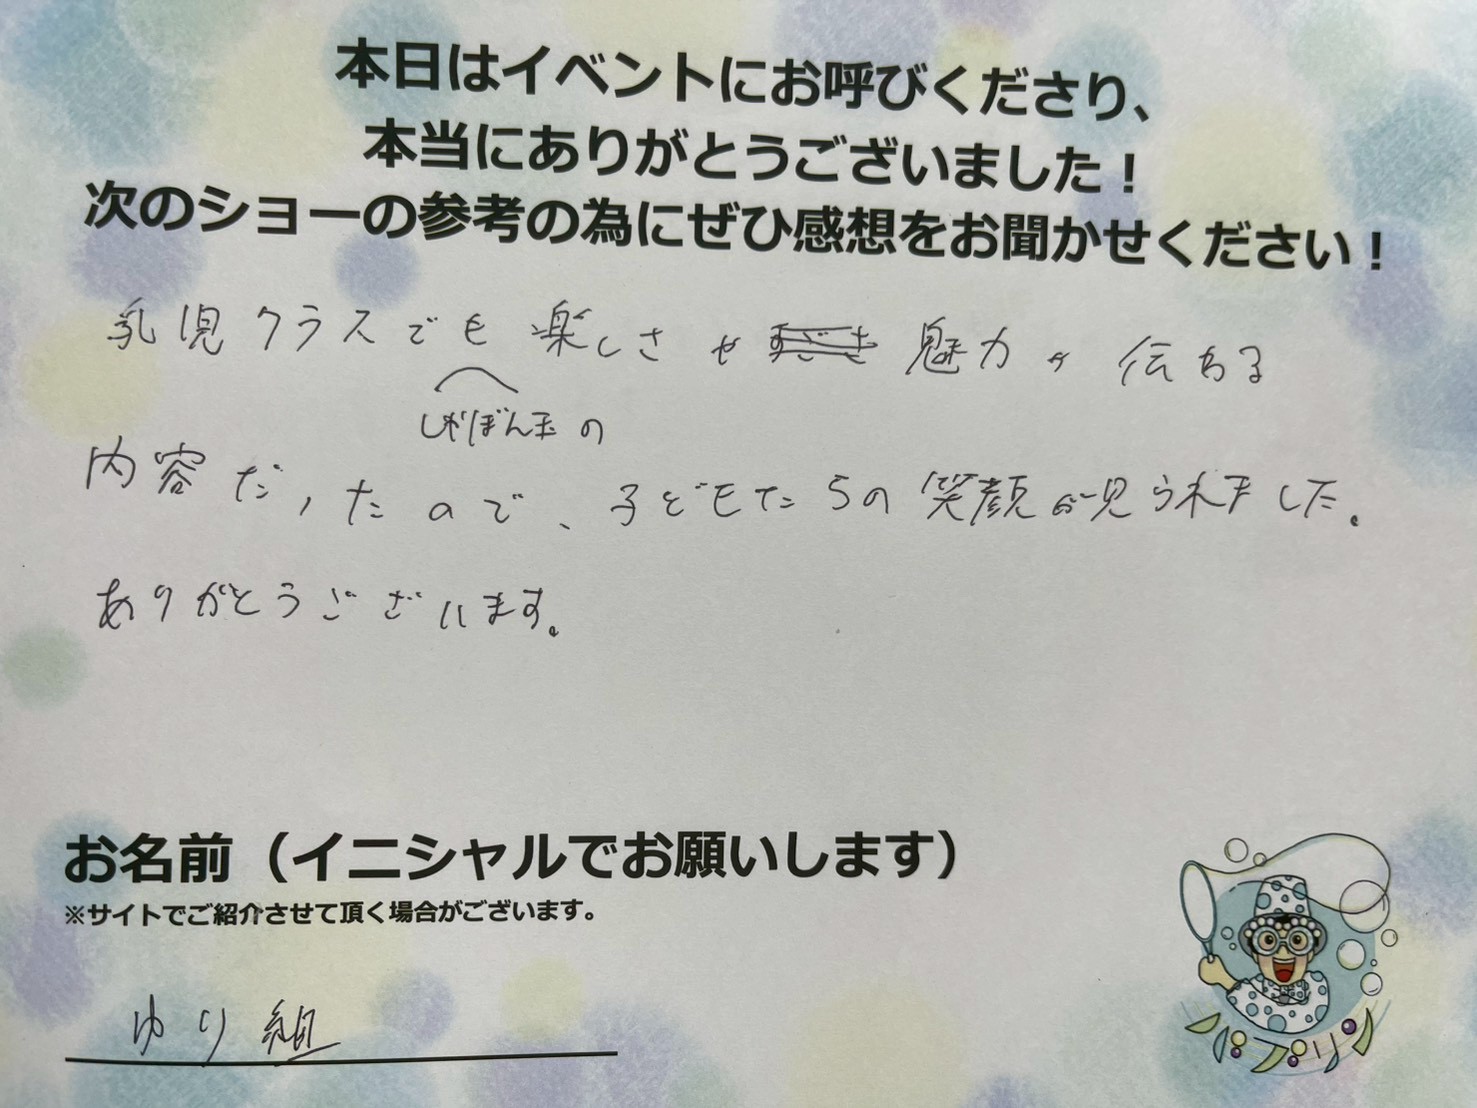 本日はイベントにお呼びくださり、
本当にありがとうございました！
次のショーの参考の為にぜひ感想をお聞かせください！
乳児クラスでも楽しさや魅力が伝わる
しゃぼん玉の
内容だったので、子どもたちの笑顔が見られました。
ありがとうございます。
お名前（イニシャルでお願いします）
※サイトでご紹介させて頂く場合がございます。
ゆり組
バブリン